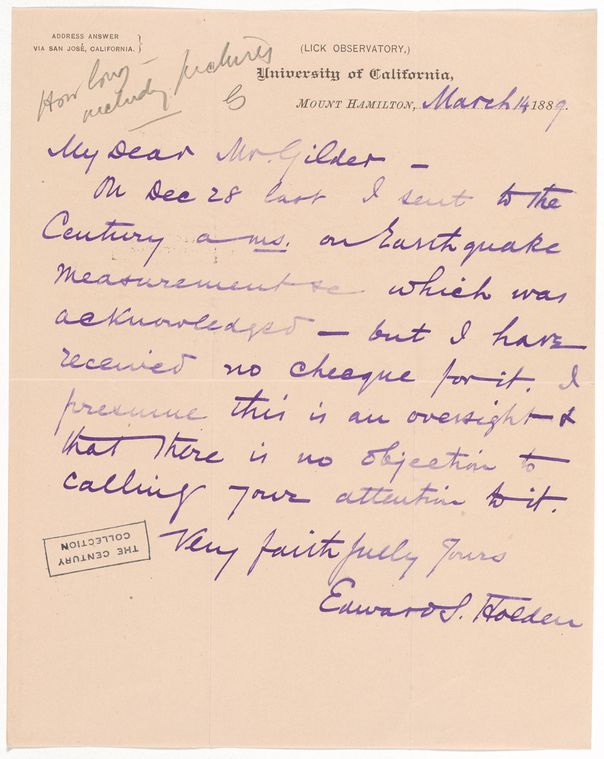 ADDRESS ANSWER
VIA SAN JOSÉ, CALIFORNIA. }
How long —
including pictures
G
(LICK OBSERVATORY,)
University of California,
MOUNT HAMILTON, March 14 1889.
My Dear Mr. Gilder —
On Dec 28 last I sent to the
Century a ms. on Earthquake
measurement &c which was
acknowledged — but I have
received no checque for it. I
presume this is an oversight &
that there is no objection to
calling your attention to it.
Very faithfully Yours
Edward S. Holden
THE CENTURY
COLLECTION